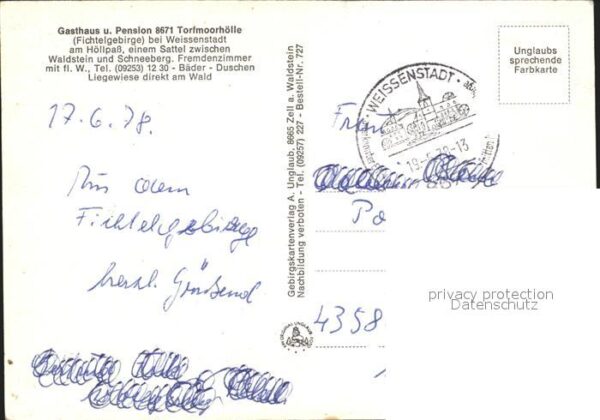 Gasthaus u. Pension 8671 Torfmoorhölle
(Fichtelgebirge) bei Weissenstadt
am Höllpaß, einem Sattel zwischen
Waldstein und Schneeberg. Fremdenzimmer
mit fl. W., Tel. (09253) 12 30 - Bäder - Duschen
Liegewiese direkt am Wald
17.6.78.
Aus dem
Fichtelgebirge
herzl. Grüßend
Gebirgskartenverlag A. Unglaub, 8665 Zell a. Waldstein
Nachbildung verboten - Tel. (09257) 227 - Bestell-Nr. 727
Unglaubs
sprechende
Farbkarte
WEISSENSTADT
-13
Po
4358
privacy protection
Datenschutz